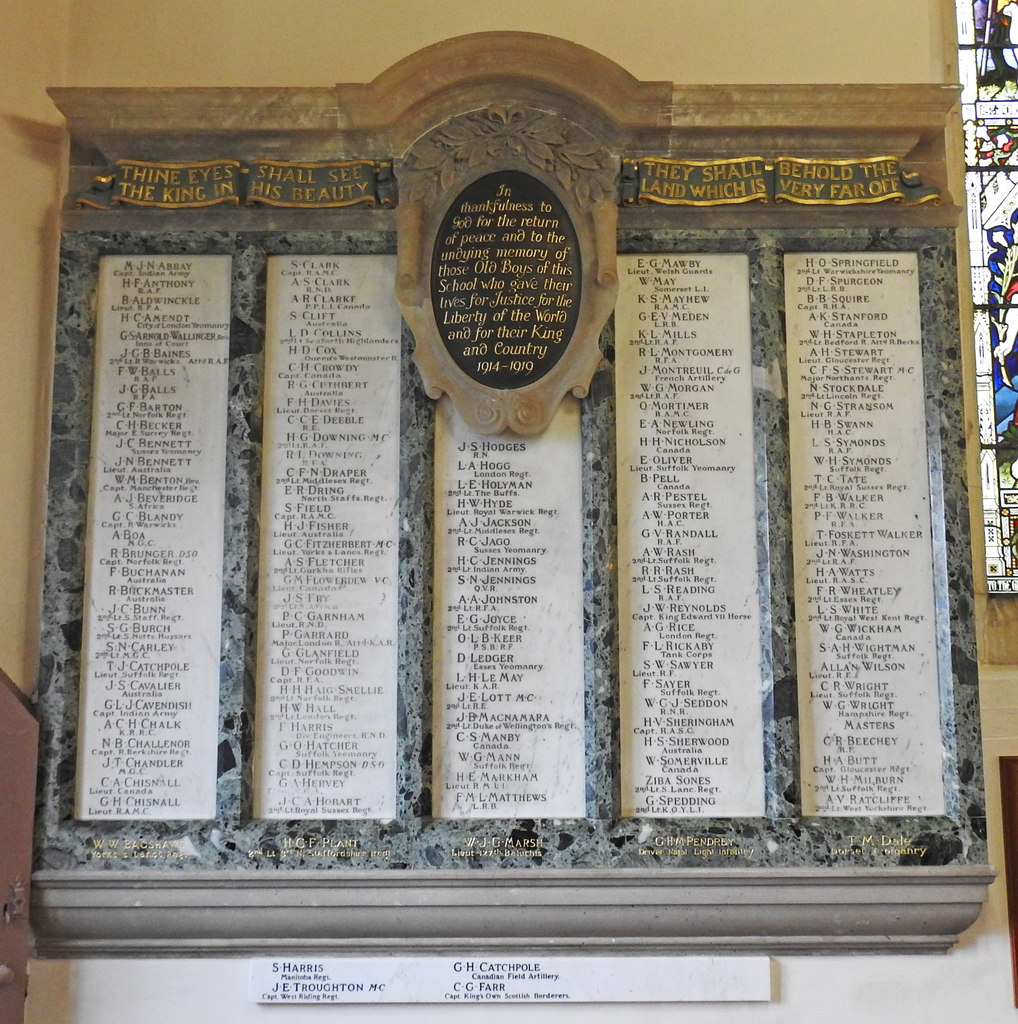 THINE EYES
THE KING IN
SHALL SEE
HIS BEAUTY
THEY SHALL
LAND WHICH IS
BEHOLD THE
VERY FAR OFF
In
thankfulness to
God for the return
of peace and to the
undying memory of
those Old Boys of this
School who gave their
lives for Justice for the
Liberty of the World
and for their King
and Country
1914-1919
M·J·N·ABBAY
Capt. Indian Army
H·F·ANTHONY
R.A.F.
B·ALDWINCKLE
Lieut. R.F.A.
H·C·AMENDT
City of London Yeomanry
G·S·ARNOLD WALLINGER
Inns of Court
J·G·B·BAINES
2nd Lt. R. Warwicks. Attd R.A.F.
F·W·BALLS
R.A.F.
J·C·BALLS
R.F.A.
G·F·BARTON
2nd Lt. Norfolk Regt.
C·H·BECKER
Major E. Surrey Regt.
J·C·BENNETT
Sussex Yeomanry
J·N·BENNETT
Lieut. Australia
W·M·BENTON Rev.
Capt. Manchester Regt.
A·J·BEVERIDGE
S. Africa
G·C·BLANDY
Capt. R. Warwicks
A·BOA
M.G.C.
R·BRUNGER. DSO
Capt. Norfolk Regt.
F·BUCHANAN
Australia
R·BUCKMASTER
Australia
J·C·BUNN
2nd Lt. S. Staff. Regt.
S·G·BURCH
2nd Lt. S. Notts Hussars
S·N·CARLEY
2nd Lt. M.G.C.
T·J·CATCHPOLE
Lieut. Suffolk Regt.
J·S·CAVALIER
Australia
G·L·J·CAVENDISH
Capt. Indian Army
A·C·H·CHALK
K.R.R.C.
N·B·CHALLENOR
Capt. R. Berkshire Regt.
J·T·CHANDLER
M.G.C.
C·A·CHISNALL
Lieut. Canada
G·H·CHISNALL
Lieut. R.A.M.C.
S·CLARK
Capt. R.A.M.C.
A·S·CLARK
R.N.D.
A·R·CLARKE
P.P.L.I. Canada
S·CLIFT
Australia
L·D·COLLINS
2nd Lt. Seaforth Highlanders
H·D·COX
Queen's Westminster R.
C·H·CROWDY
Capt. Canada
R·G·CUTHBERT
2nd Lt. R.A.F.
F·H·DAVIES
Lieut. Dorset Regt.
C·C·E·DEEBLE
R.E.
H·G·DOWNING·MC
2nd Lt. R.A.F.
R·I·DOWNING
R.F.A.
C·F·N·DRAPER
2nd Lt. Middlesex Regt.
E·R·DRING
North Staffs. Regt.
S·FIELD
Capt. R.A.M.C.
H·J·FISHER
Lieut. Australia
G·C·FITZHERBERT·MC
Lieut. Yorks & Lancs. Regt.
A·S·FLETCHER
2nd Lt. Gurkha Rifles
G·M·FLOWERDEW VC
Lieut. Canada
J·S·FRY
2nd Lt. S. Africa
P·C·GARNHAM
Lieut. R.N.D.
P·GARRARD
Major. London R. Attd K.A.R.
G·GLANFIELD
Lieut. Norfolk Regt.
D·F·GOODWIN
Capt. R.F.A.
H·H·HAIG-SMELLIE
2nd Lt. Norfolk Regt.
H·W·HALL
2nd Lt. London Regt.
F·HARRIS
Div. Engineers. R.N.D.
G·O·HATCHER
Suffolk Yeomanry
C·D·HEMPSON DSO
Capt. Suffolk Regt.
G·A·HERVEY
J·C·A·HOBART
2nd Lt. Royal Sussex Regt.
J·S·HODGES
R.N.
L·A·HOGG
London Regt.
L·E·HOLYMAN
2nd Lt. The Buffs.
H·W·HYDE
Lieut. Royal Warwick Regt.
A·J·JACKSON
2nd Lt. Middlesex Regt.
R·C·JAGO
Sussex Yeomanry.
H·C·JENNINGS
2nd Lt. Indian Army
S·N·JENNINGS
Q.V.R.
A·A·JOHNSTON
2nd Lt. R.F.A.
E·G·JOYCE
2nd Lt. Suffolk Regt.
O·L·B·KEER
P.S.B. R.F.
D·LEDGER
Essex Yeomanry.
L·H·LE MAY
Lieut. K.A.R.
J·E·LOTT MC
2nd Lt. R.E.
J·B·MACNAMARA
2nd Lt. Duke of Wellington's Regt.
C·S·MANBY
Canada
W·G·MANN
Suffolk Regt.
H·E·MARKHAM
Lieut. R.M.L.I.
F·M·L·MATTHEWS
L.R.B.
E·G·MAWBY
Lieut. Welsh Guards
W·MAY
Somerset L.I.
K·S·MAYHEW
R.A.M.C.
G·E·V·MEDEN
L.R.B.
K·L·MILLS
2nd Lt. R.A.F.
R·L·MONTGOMERY
R.F.A.
J·MONTREUIL C de G
French Artillery
W·G·MORGAN
2nd Lt. R.A.F.
O·MORTIMER
R.A.M.C.
E·A·NEWLING
Norfolk Regt.
H·H·NICHOLSON
Canada
E·OLIVER
Lieut. Suffolk Yeomanry
B·PELL
Canada
A·R·PESTEL
Sussex Regt.
A·W·PORTER
H.A.C.
G·V·RANDALL
R.A.F.
A·W·RASH
2nd Lt. Suffolk Regt.
R·R·RASH
2nd Lt. Suffolk Regt.
L·S·READING
R.A.F.
J·W·REYNOLDS
Capt. King Edward VII Horse
A·G·RICE
London Regt.
F·L·RICKABY
Tank Corps
S·W·SAWYER
Lieut. R.F.
F·SAYER
Suffolk Regt.
W·C·J·SEDDON
R.N.R.
H·V·SHERINGHAM
Capt. R.A.S.C.
H·S·SHERWOOD
Australia
W·SOMERVILLE
Canada
ZIBA SONES
2nd Lt. S. Lanc. Regt.
G·SPEDDING
2nd Lt. K.O.Y.L.I.
H·O·SPRINGFIELD
2nd Lt. Warwickshire Yeomanry
D·F·SPURGEON
2nd Lt. L.R.B.
B·B·SQUIRE
Capt. R.H.A.
A·K·STANFORD
Canada
W·H·STAPLETON
2nd Lt. Bedford R. Attd R. Berks
A·H·STEWART
Lieut. Gloucester Regt.
C·F·S·STEWART MC
Major Northants. Regt.
N·STOCKDALE
2nd Lt. Lincoln Regt.
N·G·STRANSOM
Lieut. R.F.
H·B·SWANN
H.A.C.
L·S·SYMONDS
R.A.F.
W·H·SYMONDS
Suffolk Regt.
T·C·TATE
2nd Lt. Royal Sussex Regt.
F·B·WALKER
2nd Lt. K.R.R.C.
P·F·WALKER
R.F.A.
T·FOSKETT WALKER
Lieut. R.F.A.
J·N·WASHINGTON
2nd Lt. R.A.F.
H·A·WATTS
Lieut. R.A.S.C.
F·R·WHEATLEY
2nd Lt. Essex Regt.
L·S·WHITE
2nd Lt. Royal West Kent Regt.
W·G·WICKHAM
Canada
S·A·H·WIGHTMAN
Suffolk Regt.
ALLAN WILSON
Lieut. R.E.
C·R·WRIGHT
Suffolk Regt.
W·G·WRIGHT
Hampshire Regt.
MASTERS
C·R·BEECHEY
R.F.
H·A·BUTT
Capt. Gloucester Regt.
W·H·MILBURN
2nd Lt. R.A.F.
A·V·RATCLIFFE
2nd Lt. West Yorkshire Regt.
W·W·BAGSHAWE
Yorks & Lancs. Regt.
H·C·F·PLANT
2nd Lt. 3rd N. Staffordshire Regt.
W·J·G·MARSH
Lieut. 127th Baluchis
G·H·M·PENDREY
Driver Natal Light Infantry
T·M·Dale
Dorset Yeomanry
S·HARRIS
Manitoba Regt.
J·E·TROUGHTON MC
Capt. West Riding Regt.
G·H·CATCHPOLE
Canadian Field Artillery.
C·G·FARR
Capt. King's Own Scottish Borderers.